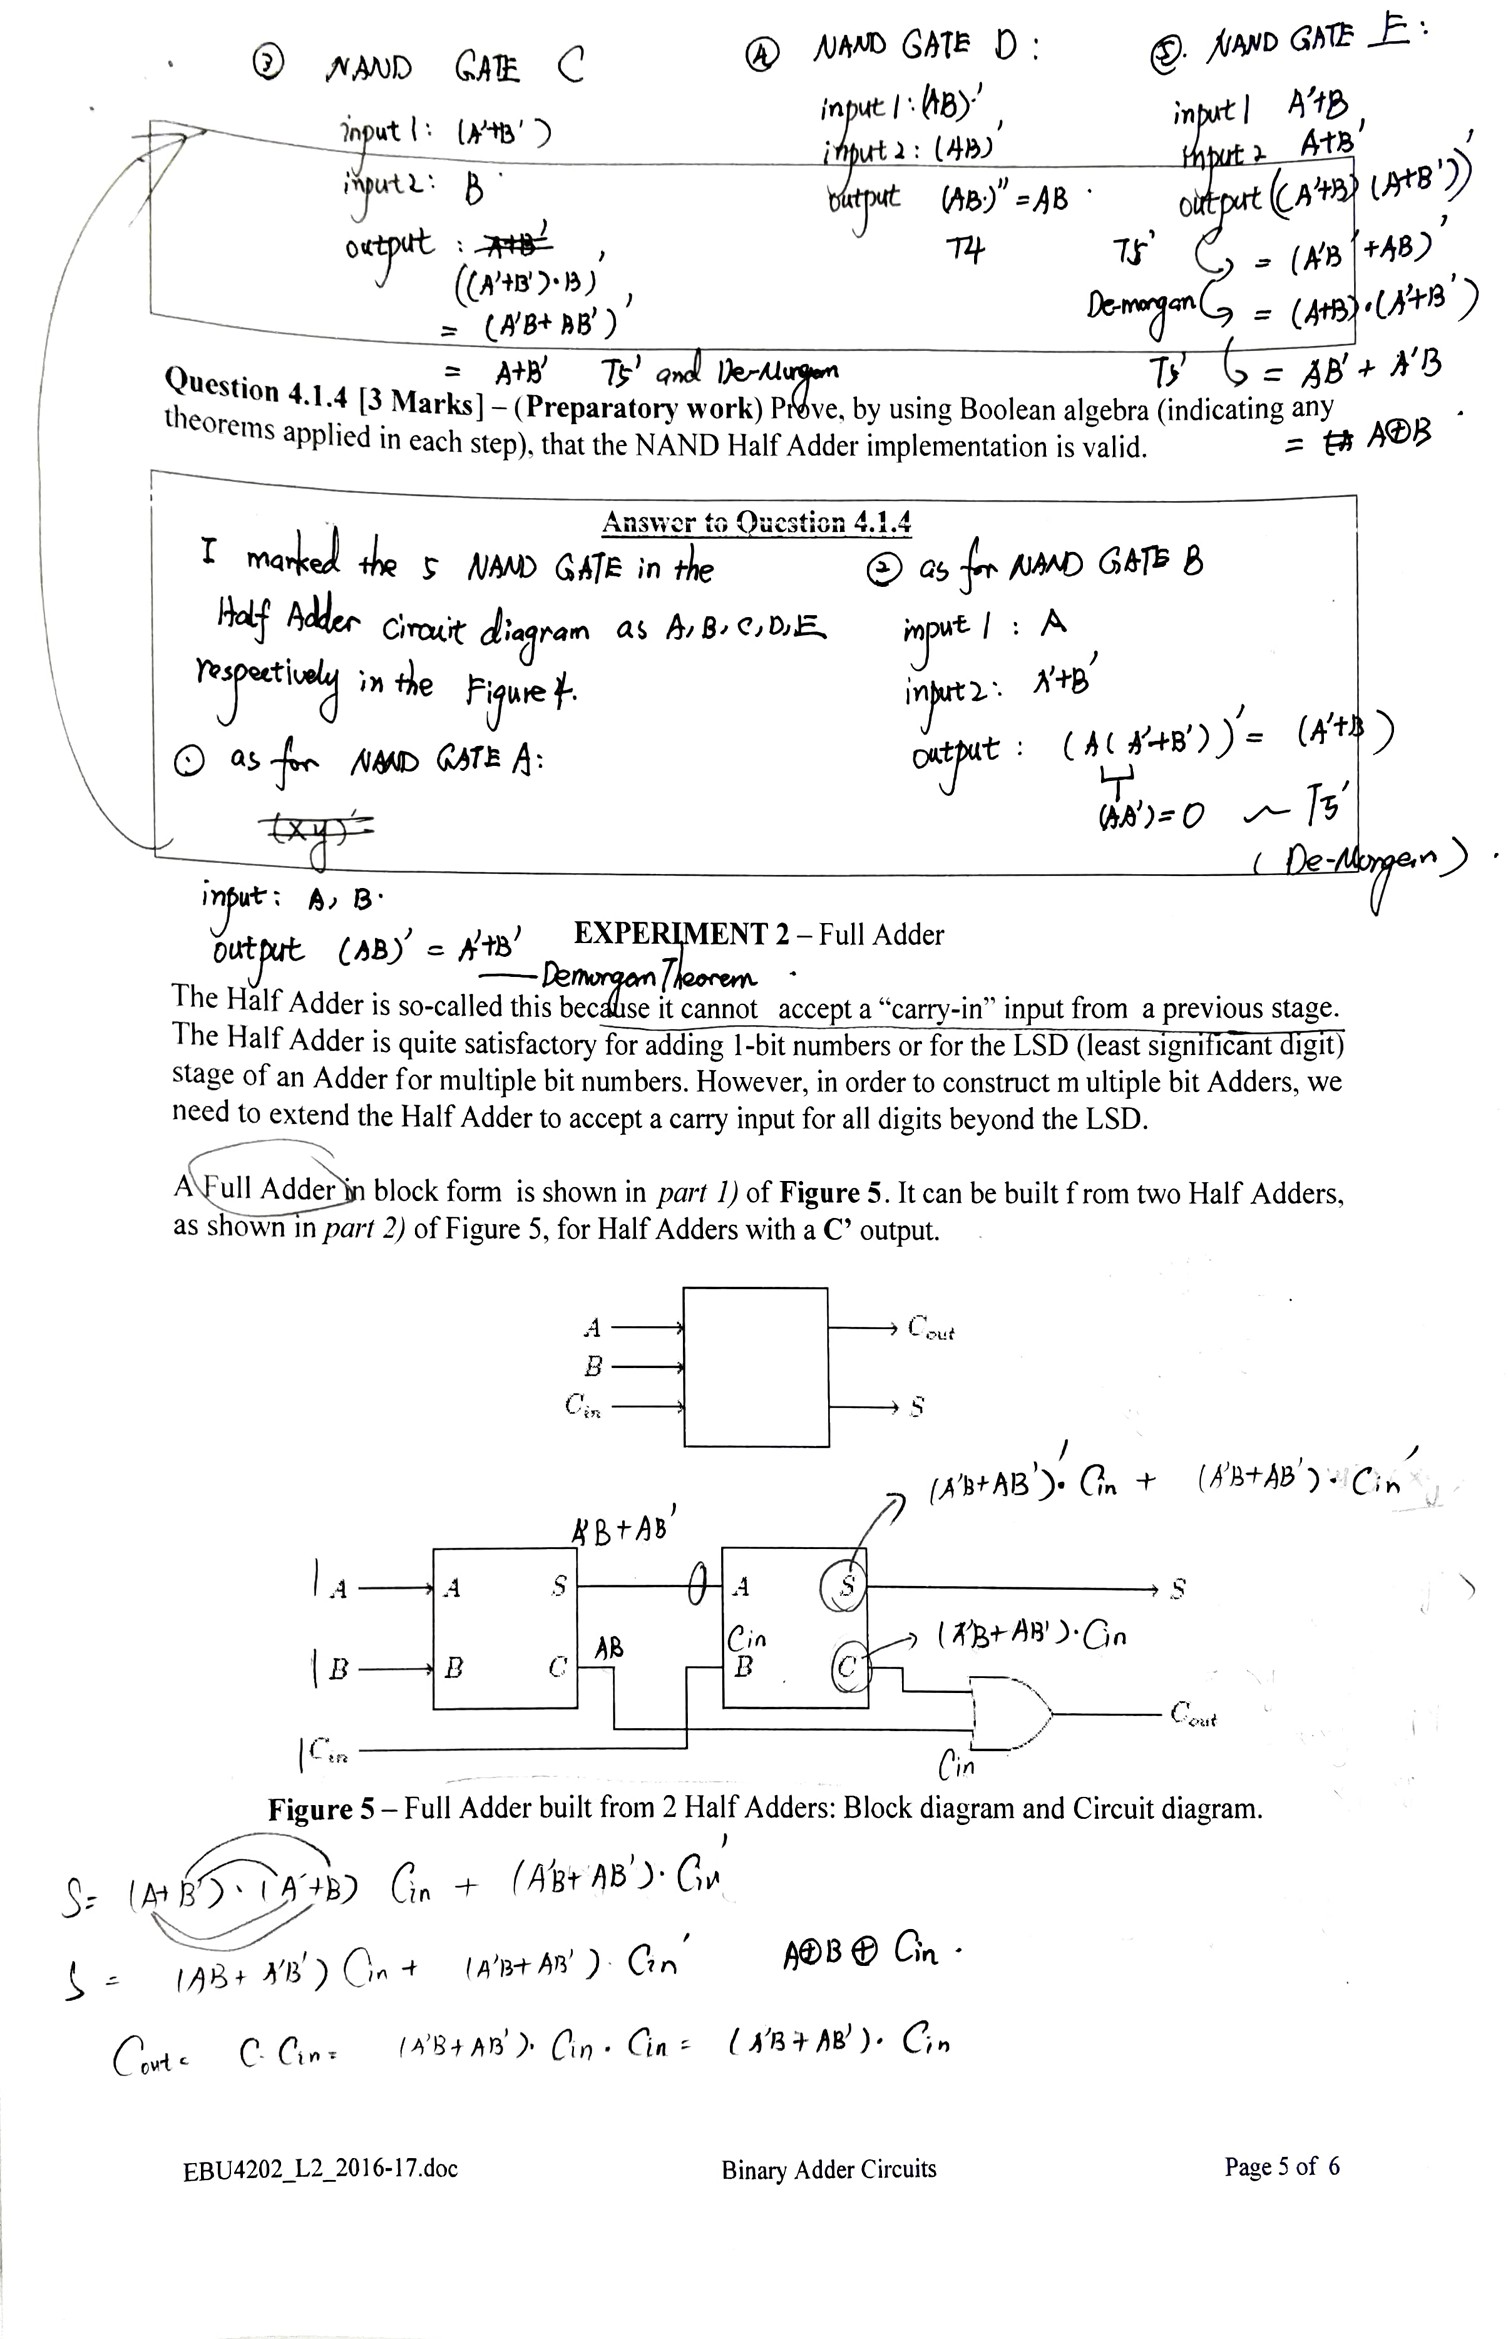 ③ NAND GATE C
input 1: (A'+B')
input 2: B
output :
((A'+B')·B)'
= (A'B+BB')'
= A+B' T5' and De-Morgan
④ NAND GATE D:
input 1: (AB)'
input 2: (AB)'
output (AB)'' = AB
T4
⑤. NAND GATE E:
input 1 A'+B
input 2 A+B'
output ((A'+B)(A+B'))'
T5' = (A'B'+AB)'
De-morgan = (A+B)·(A'+B')
T5' = AB' + A'B
= A⊕B
Question 4.1.4 [3 Marks] – (Preparatory work) Prove, by using Boolean algebra (indicating any
theorems applied in each step), that the NAND Half Adder implementation is valid.
Answer to Question 4.1.4
I marked the 5 NAND GATE in the
Half Adder circuit diagram as A, B, C, D, E
respectively in the Figure 4.
① as for NAND GATE A:
(xy)'=
input: A, B.
output (AB)' = A'+B'
Demorgan Theorem
② as for NAND GATE B
input 1 : A
input 2: A'+B'
output : (A(A'+B'))' = (A'+B)
(AA')=0 ~ T5'
(De-Morgan).
EXPERIMENT 2 – Full Adder
The Half Adder is so-called this because it cannot accept a “carry-in” input from a previous stage.
The Half Adder is quite satisfactory for adding 1-bit numbers or for the LSD (least significant digit)
stage of an Adder for multiple bit numbers. However, in order to construct m ultiple bit Adders, we
need to extend the Half Adder to accept a carry input for all digits beyond the LSD.
A Full Adder in block form is shown in part 1) of Figure 5. It can be built f rom two Half Adders,
as shown in part 2) of Figure 5, for Half Adders with a C’ output.
A
B
Cin
Cout
S
(A'B+AB')'· Cin + (A'B+AB')· Cin'
A'B+AB'
A A S A S S
Cin
(A'B+AB')·Cin
AB
B B C B C
Cin
Cout
Cin
Figure 5 – Full Adder built from 2 Half Adders: Block diagram and Circuit diagram.
S= (A+B')·(A'+B) Cin + (A'B+AB')·Cin'
S = (AB+A'B') Cin + (A'B+AB')·Cin' A⊕B⊕Cin.
Cout = C·Cin = (A'B+AB')·Cin·Cin = (A'B+AB')·Cin
EBU4202_L2_2016-17.doc Binary Adder Circuits Page 5 of 6